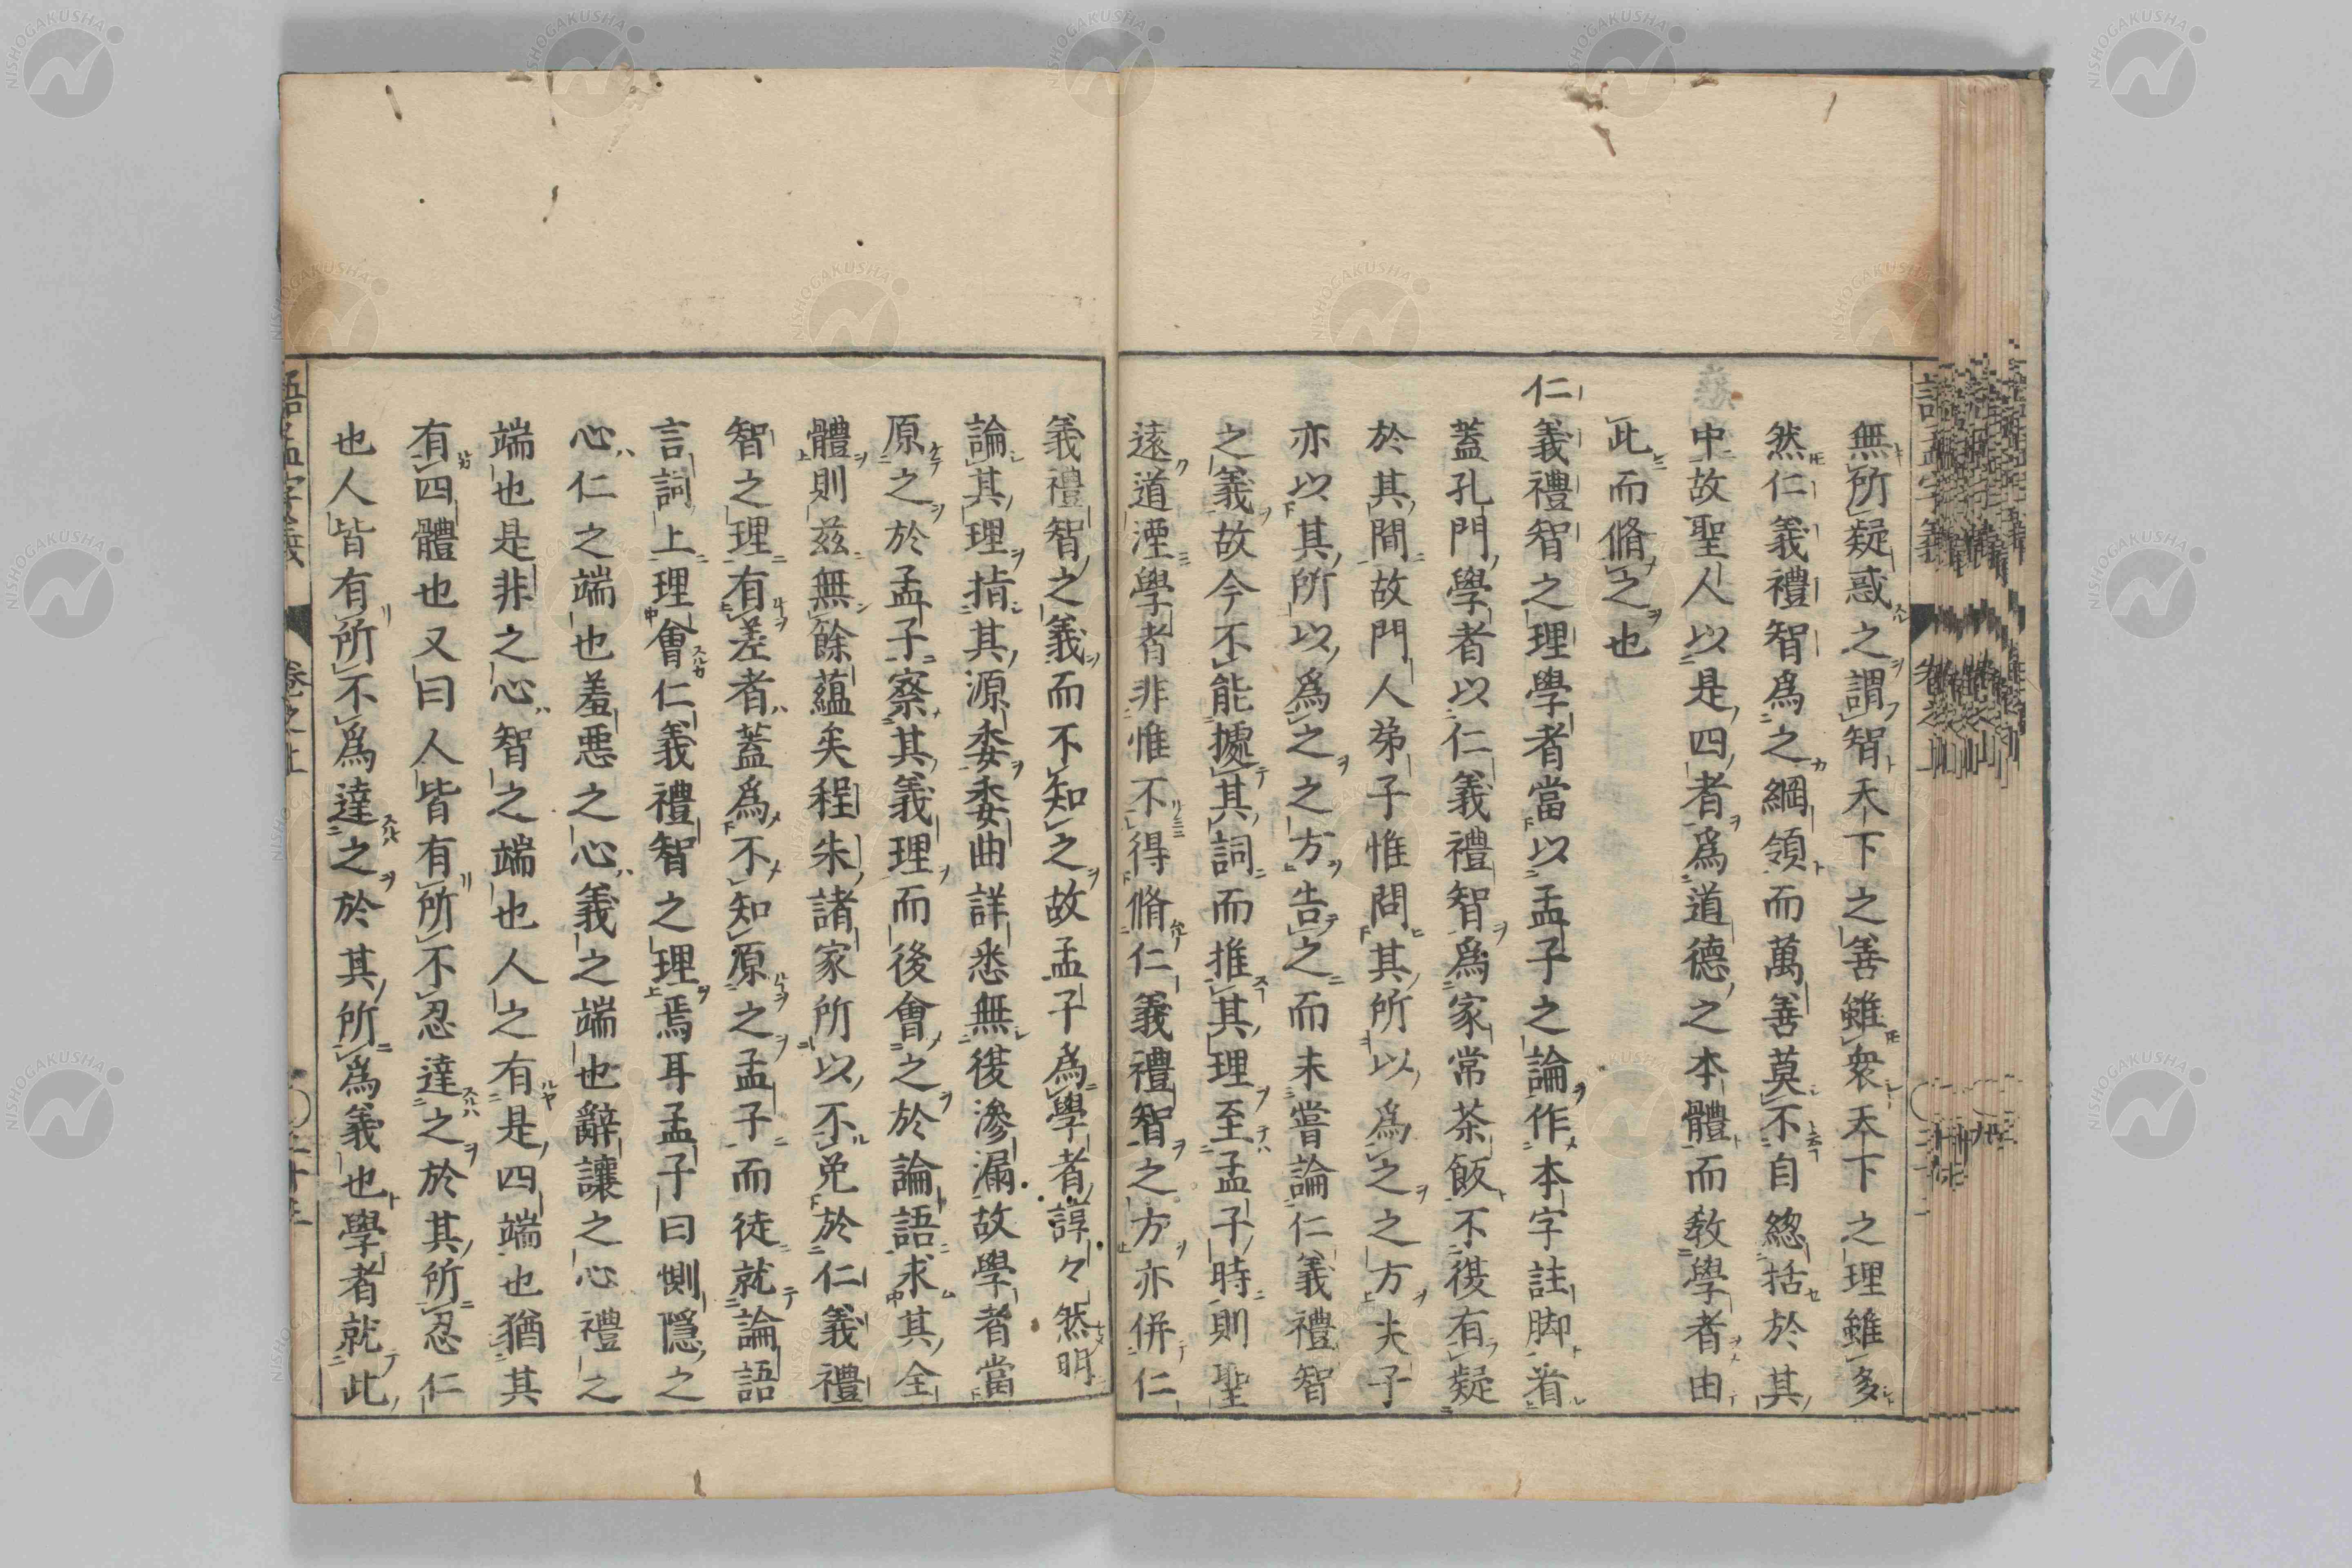 無所疑惑之謂智天下之善雖衆天下之理雖多
然仁義禮智爲之綱領而萬善莫不自緫括於其
中故聖人以是四者爲道德之本體而敎學者由
此而脩之也
仁義禮智之理學者當以孟子之論作本字註脚看
蓋孔門學者以仁義禮智爲家常茶飯不復有疑
於其間故門人弟子惟問其所以爲之之方夫子
亦以其所以爲之之方告之而未嘗論仁義禮智
之義故今不能據其詞而推其理至孟子時則聖
遠道湮學者非惟不得脩仁義禮智之方亦併仁
義禮智之義而不知之故孟子爲學者諄々然明
論其理指其源委委曲詳悉無復滲漏故學者當
原之於孟子察其義理而後會之於論語求其全
體則茲無餘蘊矣程朱諸家所以不免於仁義禮
智之理有差者蓋爲不知原之孟子而徒就論語
言詞上理會仁義禮智之理焉耳孟子曰惻隱之
心仁之端也羞惡之心義之端也辭讓之心禮之
端也是非之心智之端也人之有是四端也猶其
有四體也又曰人皆有所不忍達之於其所忍仁
也人皆有所不爲達之於其所爲義也學者就此
語孟字義
卷之上
語孟字義
卷之
NISHOGAKUSHA